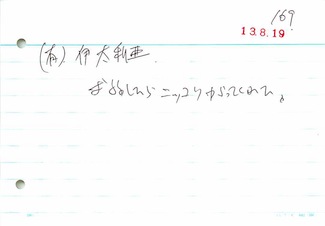 169
13.8.19
(有) 伊太利亜
お話したらニッコリ笑ってくれた。